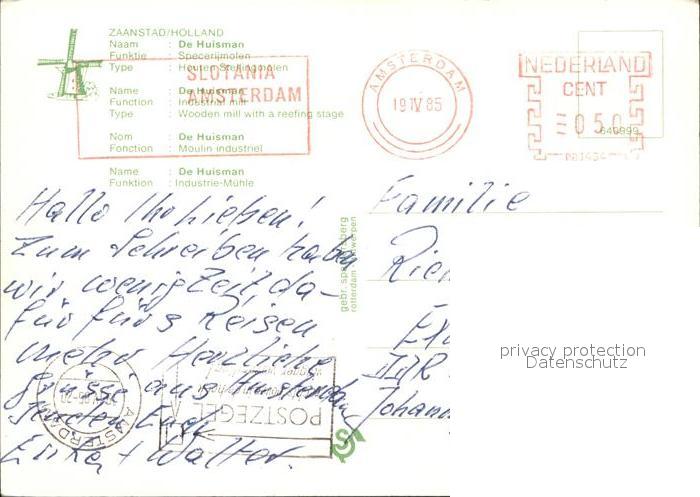 ZAANSTAD/HOLLAND
Naam : De Huisman
Funktie : Specerijmolen
Type : Houten Stellingmolen
Name : De Huisman
Function : Industrial mill
Type : Wooden mill with a reefing stage
Nom : De Huisman
Fonction : Moulin industriel
Name : De Huisman
Funktion : Industrie-Mühle
SLOTANIA
AMSTERDAM
AMSTERDAM
19 IV 85
NEDERLAND
CENT
050
640999
Hallo Ihr Lieben!
Zum Schreiben haben
wir wenig Zeit, da-
für fürs Reisen
mehr. Herzliche
Grüsse aus Amsterdam
senden Euch
Erika + Walter.
gebr. spanjersberg
rotterdam antwerpen
Familie
DDR
Johann
POSTZEGEL
AMSTERDAM
privacy protection
Datenschutz